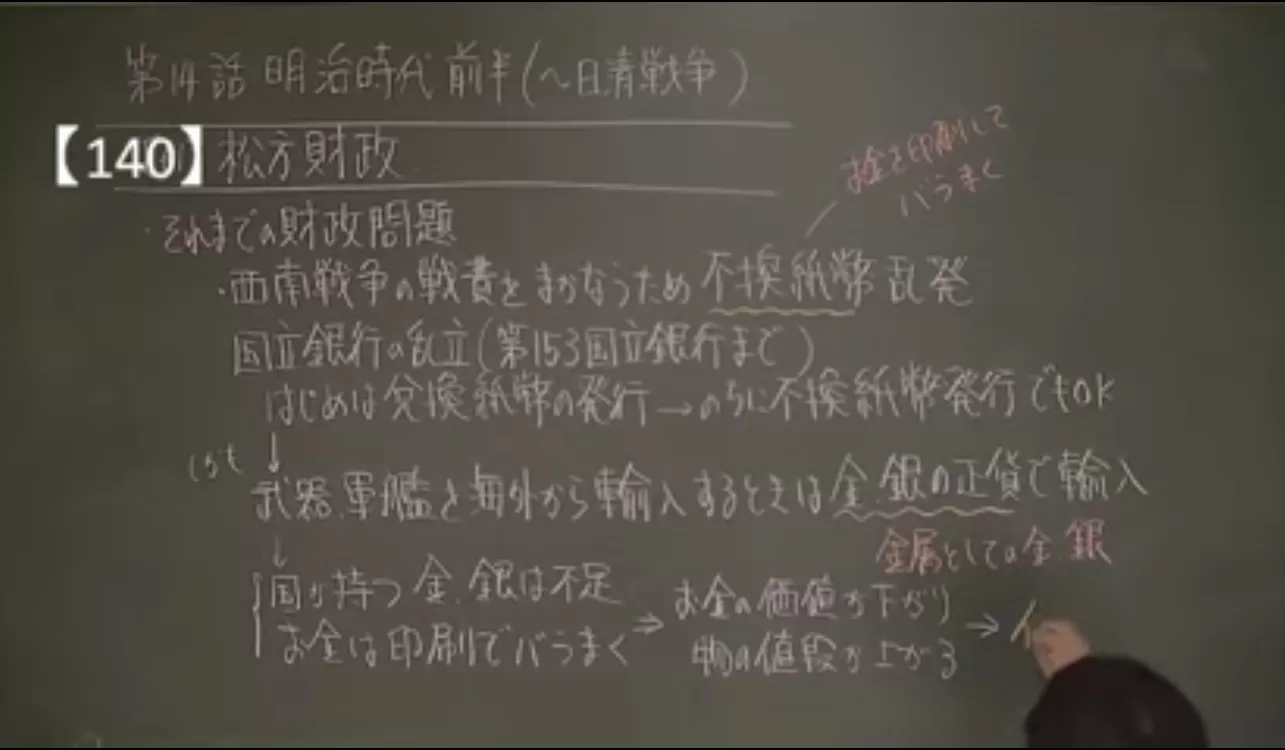 第14話 明治時代前半(~日清戦争)
【140】松方財政
お金を印刷して
バラまく
・それまでの財政問題
・西南戦争の戦費をまかなうため不換紙幣乱発
国立銀行の乱立(第153国立銀行まで)
はじめは兌換紙幣の発行→のちに不換紙幣発行でもOK
しかも ↓
武器.軍艦を海外から輸入するときは金.銀の正貨で輸入
金属としての金.銀
↓
国が持つ金.銀は不足
お金は印刷でバラまく
⇒ お金の価値が下がり
物の値段が上がる ⇒